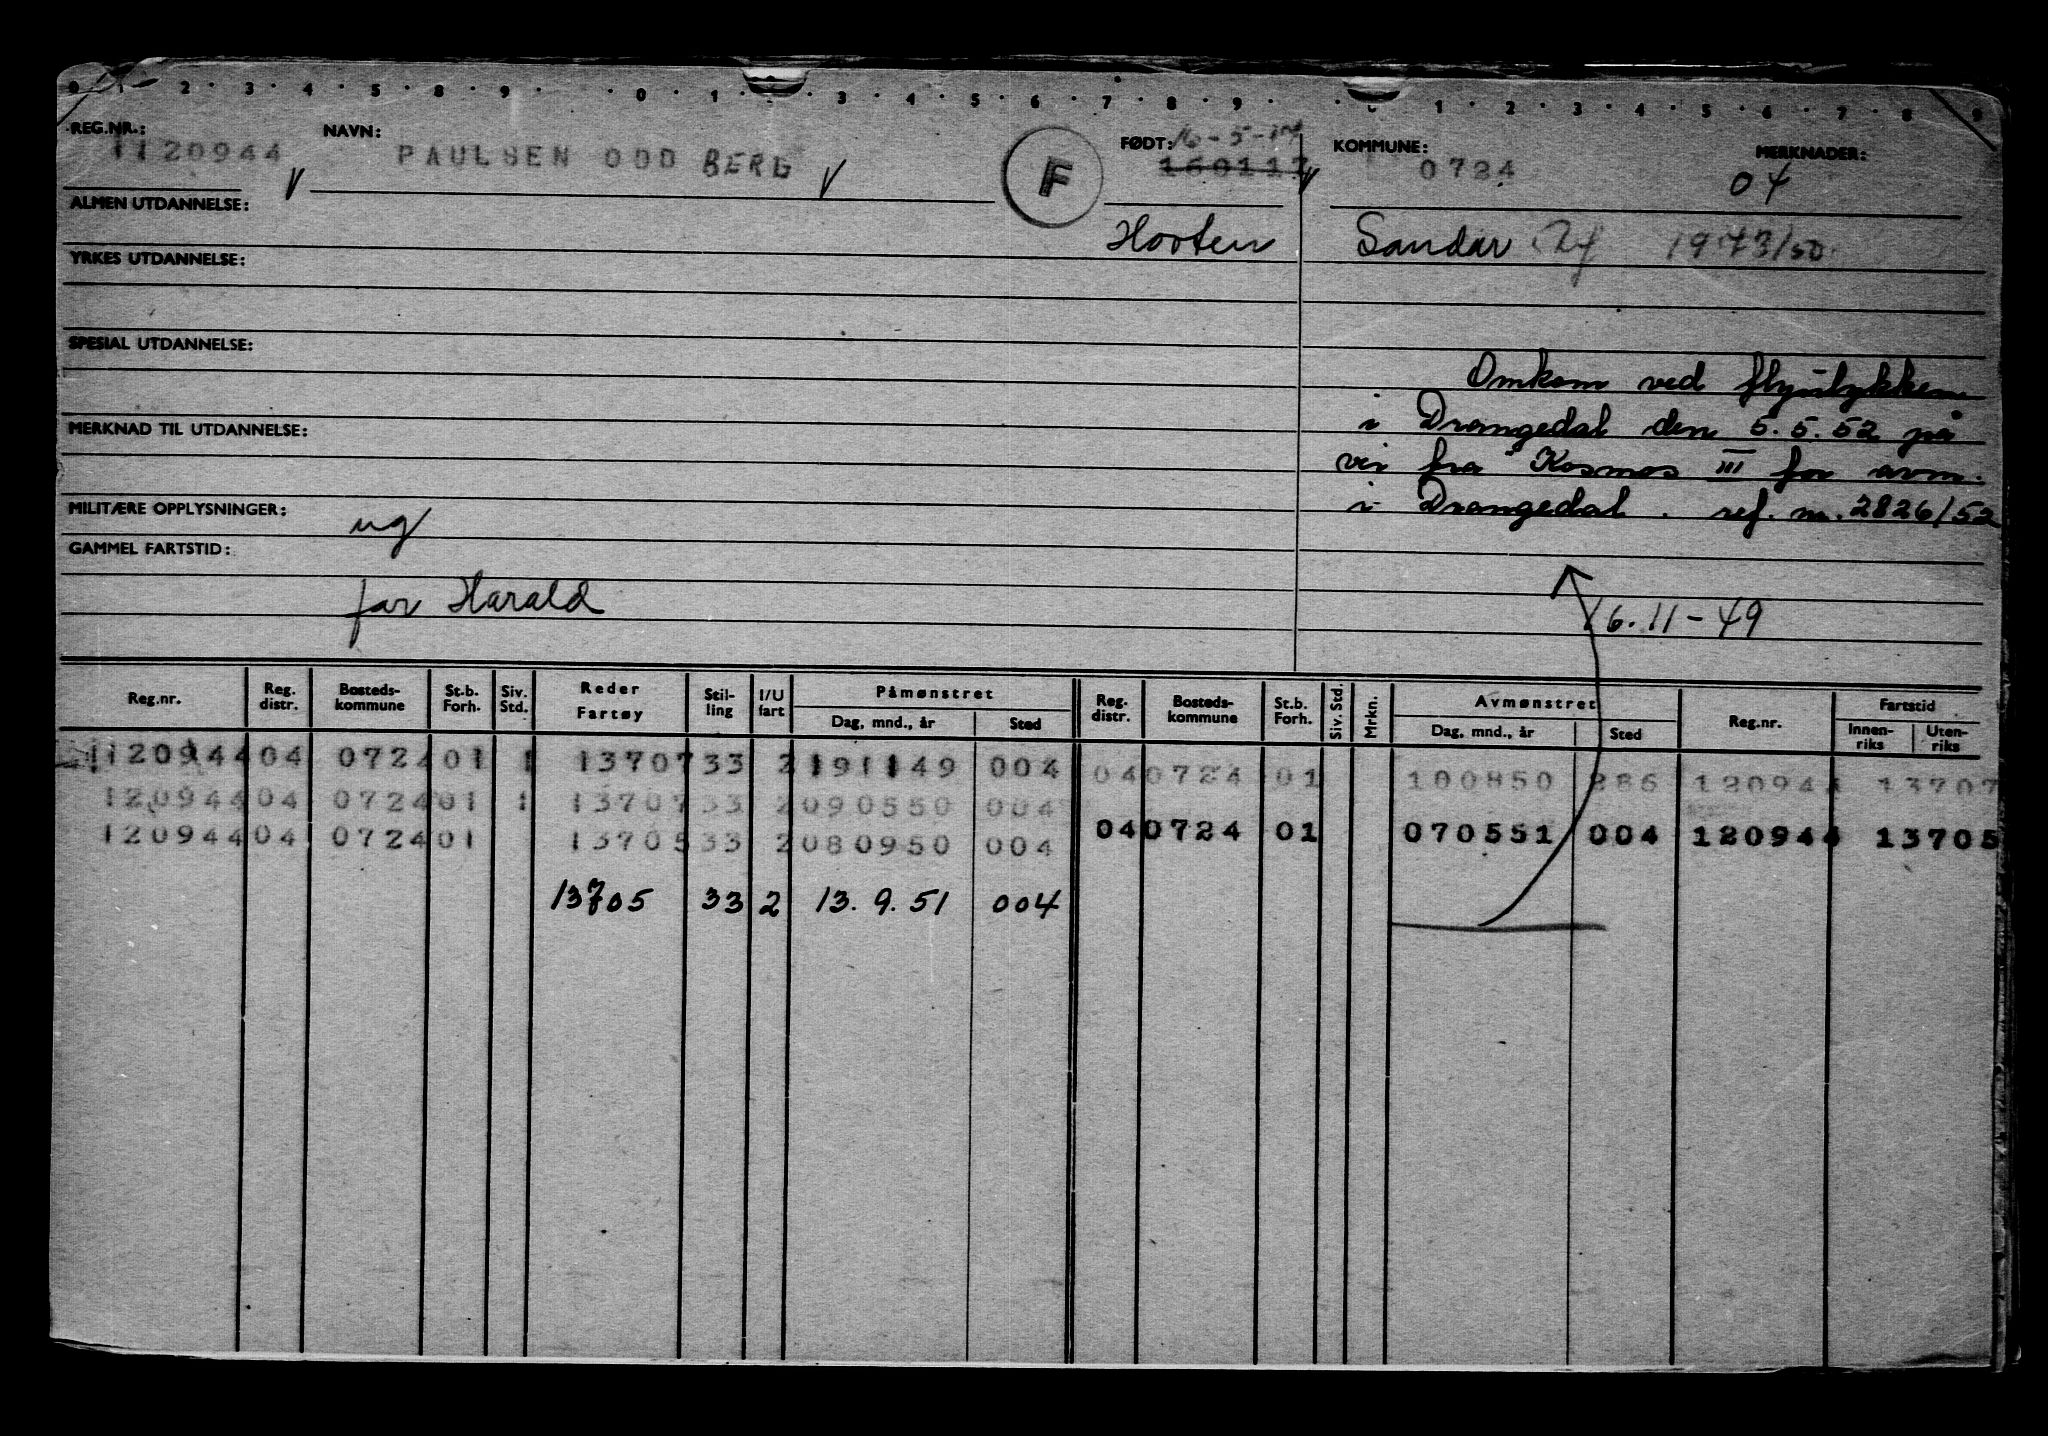 0 2 3 4 5 8 9 0 1 3 4 5 6 7 8 9 1 2 3 4 5 6 7 8 9
REG.NR.: NAVN: FØDT: 16-5- KOMMUNE: MERKNADER:
1120944 PAULSEN ODD BERG F 160117 0724 04
ALMEN UTDANNELSE: Horten Sandar 1973/50
YRKES UTDANNELSE:
SPESIAL UTDANNELSE:
Omkom ved flyulykken
i Drangedal den 5.5.52 på
MERKNAD TIL UTDANNELSE:
vei fra Kosmos III for avm.
i Drangedal. ref. nr. 2826/52
MILITÆRE OPPLYSNINGER: ug
GAMMEL FARTSTID:
far Harald 16.11-49
Reg.nr. Reg. distr. Bosteds-kommune St.b. Forh. Siv. Std. Reder Fartøy Stil-ling I/U fart Påmønstret Dag, mnd., år Sted Reg. distr. Bosteds-kommune St.b. Forh. Siv. Std. Mrkn. Avmønstret Dag, mnd., år Sted Reg.nr. Fartstid Innen-riks Uten-riks
1120944 04 0724 01 1 13707 33 2 191149 004 04 0724 01 100850 286 120944 13707
120944 04 0724 01 1 13707 33 2 090550 004
120944 04 0724 01 13705 33 2 080950 004 04 0724 01 070551 004 120944 13705
13705 33 2 13.9.51 004